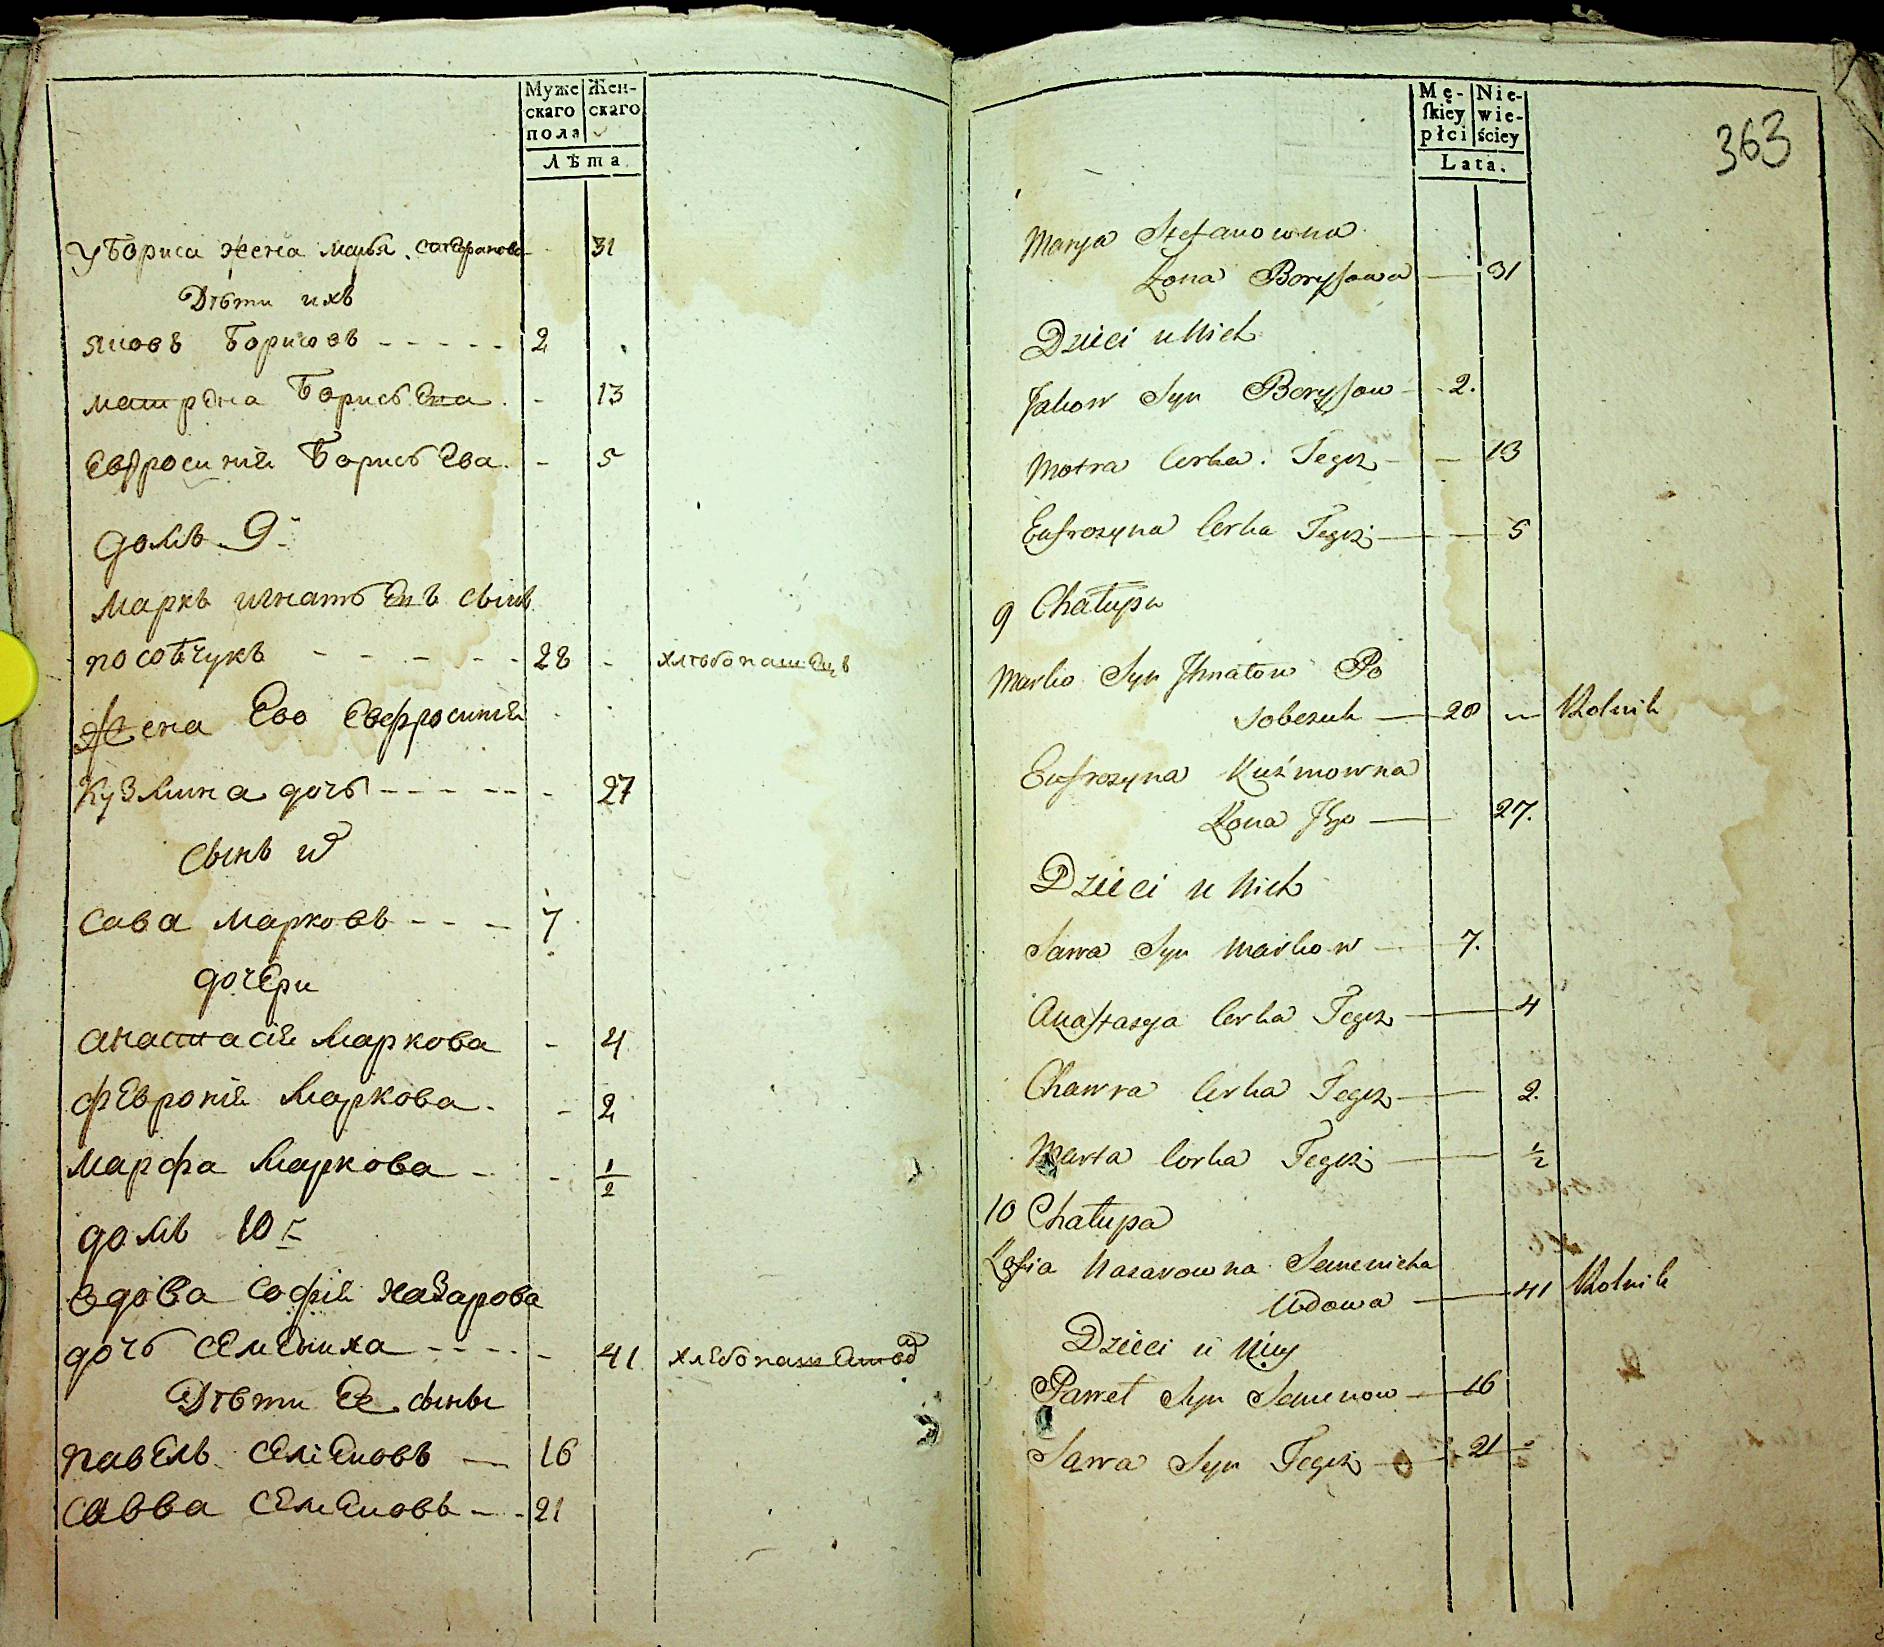 Муже
скаго
пола
Жен-
скаго
Лѣта.
У Бориса жена Марья Стефанова 31
Дѣти ихъ
Яковъ Борисовъ - - - - - 2
Матрена Борисъева - 13
Евфросинія Борисъева - 5
домъ 9й
Марко Игнатъевъ сынъ
пособчукъ - - - - - 28 - хлѣбопашецъ
Жена Его Евфросинія
Кузмина дочь - - - - - - 27
Сынъ и
Сава Марковъ - - - 7
дочери
Анастасія Маркова - 4
Февронія Маркова - 2
Марфа Маркова - - 1/2
домъ 10й
вдова Софія Назарова
дочь Семениха - - - - - 41 хлебопашество
Дѣти Ее сыны
Павелъ Семеновъ — 16
Савва Семеновъ - - 21
Mę-
ſkiey
płci
Nie-
wie-
ściey
Lata.
363
Marya Stefanowna
Żona Borysowa — 31
Dzieci u Nich
Jakow Syn Borysow - 2.
Motra Corka Tegoż - - 13
Eufrozyna Corka Tegoż — 5
9 Chałupa
Marko Syn Ihnatow Po
sobczuk — 28 — Rolnik
Eufrozyna Kuźmowna
Żona Jego — 27.
Dzieci u Nich
Sawa Syn Markow — 7.
Anastazya Corka Tegoż — 4
Chawra Corka Tegoż — 2.
Marta Corka Tegoż — 1/2
10 Chałupa
Zofia Nazarowna Semenicha
Wdowa — 41 Rolnik
Dzieci u Niey
Paweł Syn Semenow — 16
Sawa Syn Tegoż — 21 -